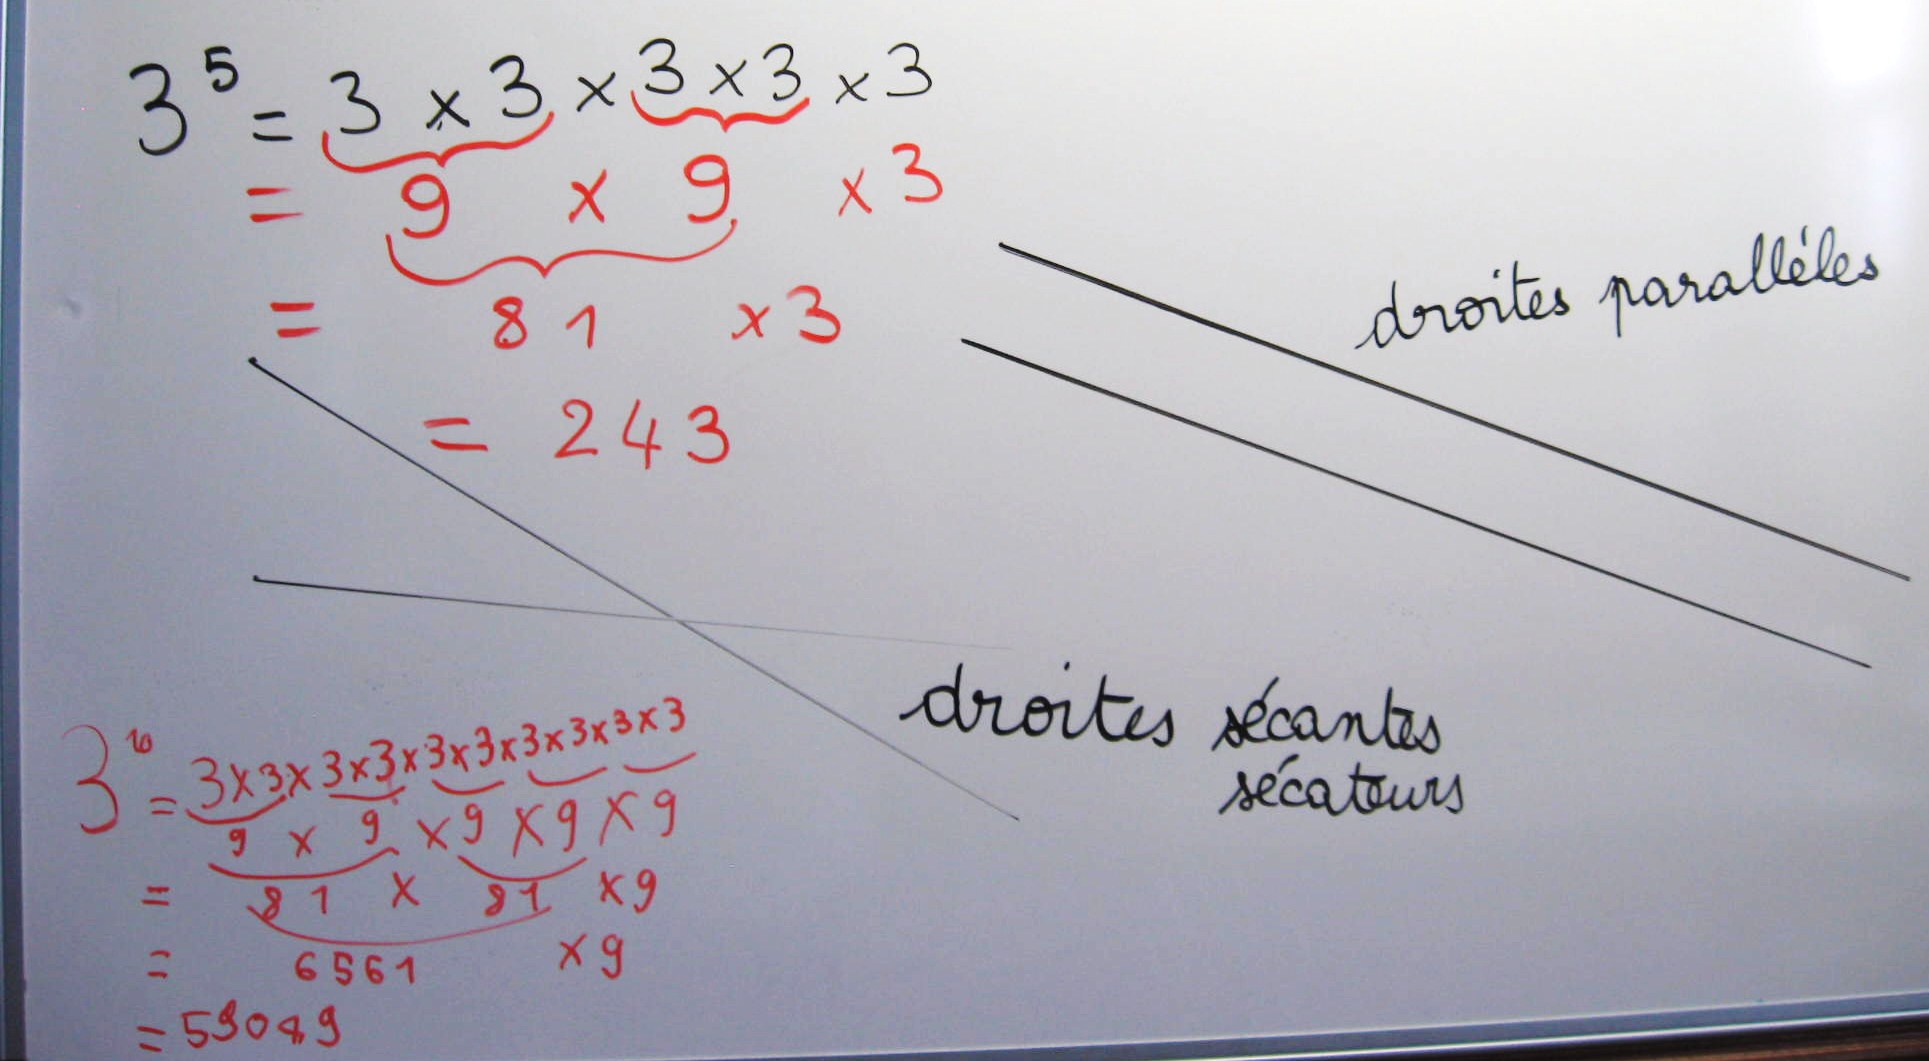 3⁵ = 3 × 3 × 3 × 3 × 3
= 9 × 9 × 3
= 81 × 3
= 243
droites paralléles
droites sécantes
sécateurs
3¹⁰ = 3×3×3×3×3×3×3×3×3×3
9 × 9 × 9 × 9 × 9
= 81 × 81 × 9
= 6561 × 9
= 59049